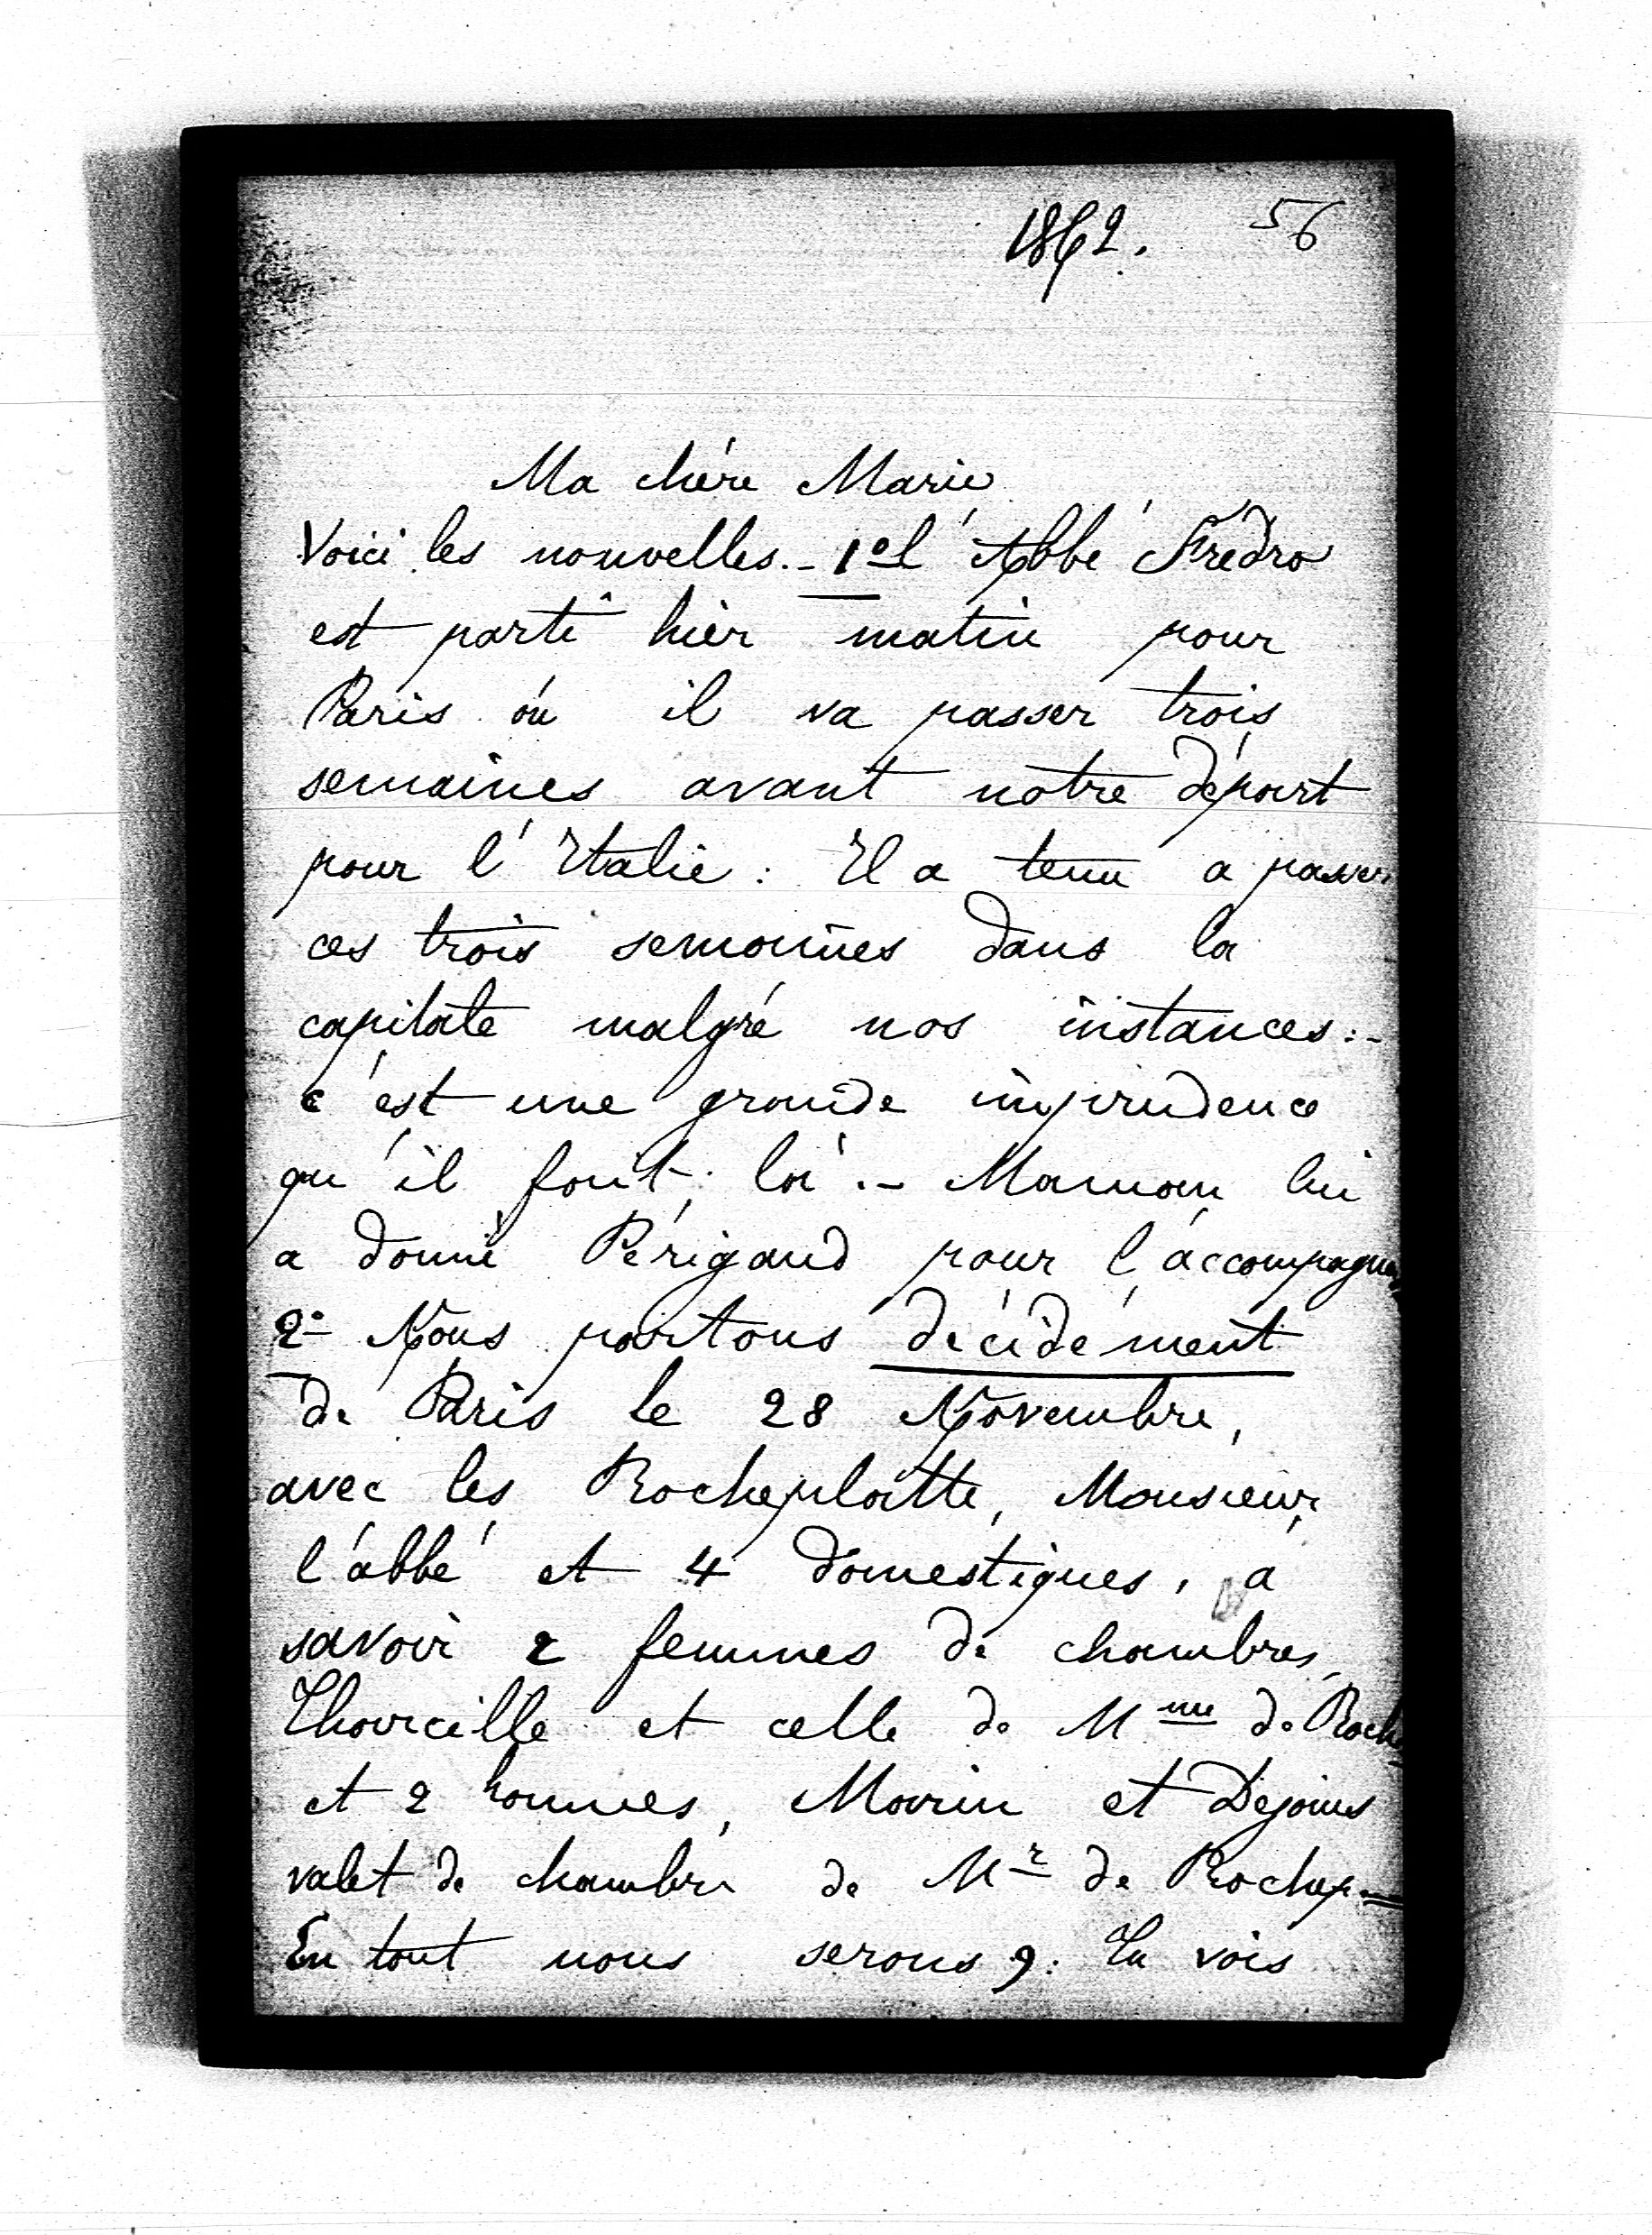 1862. 56
Ma chère Marie
Voici les nouvelles.- 1º l'Abbé Frédro
est parti hier matin pour
Paris où il va passer trois
semaines avant notre départ
pour l'Italie : Il a tenu a passer
ces trois semaines dans la
capitale malgré nos instances:-
c'est une grande imprudence
qu'il fait là.- Maman lui
a donné Périgaud pour l'accompagner
2º Nous partons décidément
de Paris le 28 Novembre,
avec les Rocheplatte, Monsieur
l'abbé et 4 domestiques, a
savoir 2 femmes de chambres,
et celle de Mme de Roch
et 2 hommes, Marin et
valet de chambre de Mr de Rochep.
En tout nous serons 9: Tu vois